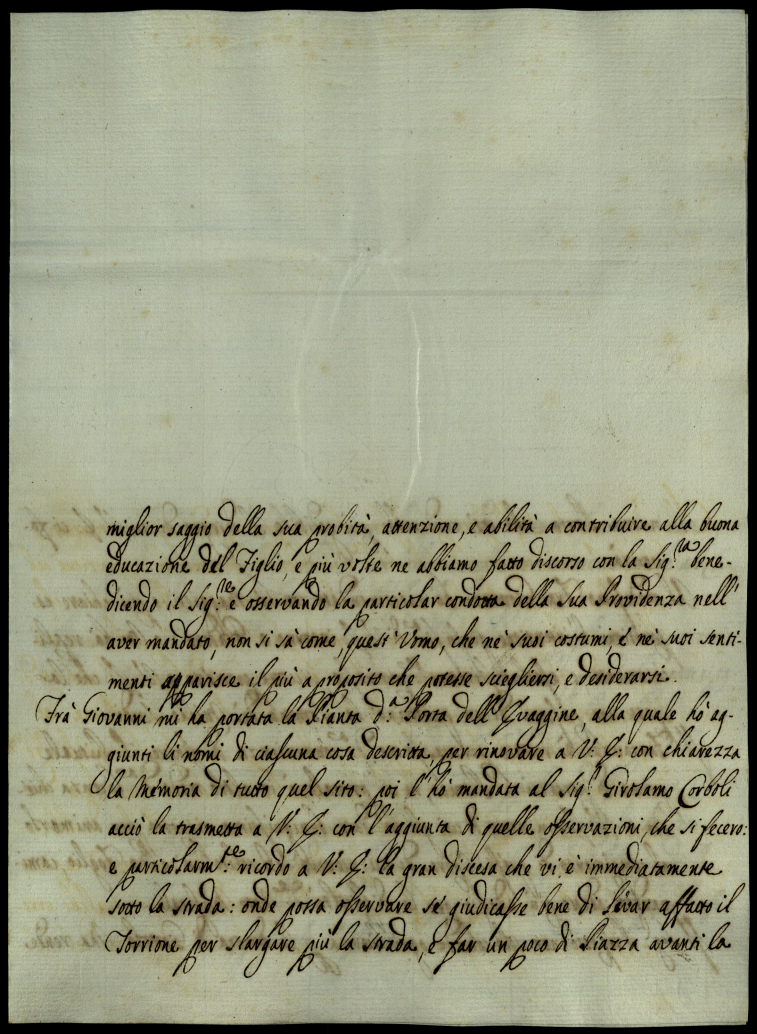 miglior saggio della sua probità, attenzione, e abilità a contribuire alla buona
educazione del Figlio, e più volte ne abbiamo fatto discorso con la Sig.ra bene-
dicendo il Sig.re e osservando la particolar condotta della Sua Providenza nell'
aver mandato, non si sà come, quest'Uomo, che nè suoi costumi, è nè suoi senti-
menti apparisce il più a proposito che potesse sciegliersi, e desiderarsi.
Frà Giovanni mi ha portata la Pianta d.a Porta dell' alla quale hò ag-
giunti li nomi di ciascuna cosa descritta, per rinovare a V: S: con chiarezza
la Memoria di tutto quel sito: poi l'hò mandata al Sig.r Girolamo Corboli
acciò la trasmetta a V: S: con l'aggiunta di quelle osservazioni, che si fecero:
e particolarm.te: ricordo a V: S: la gran discesa che vi è immediatamente
sotto la strada: onde possa osservare sè giudicasse bene di levar affatto il
Torrione per slargare più la strada, è far un poco di Piazza avanti la